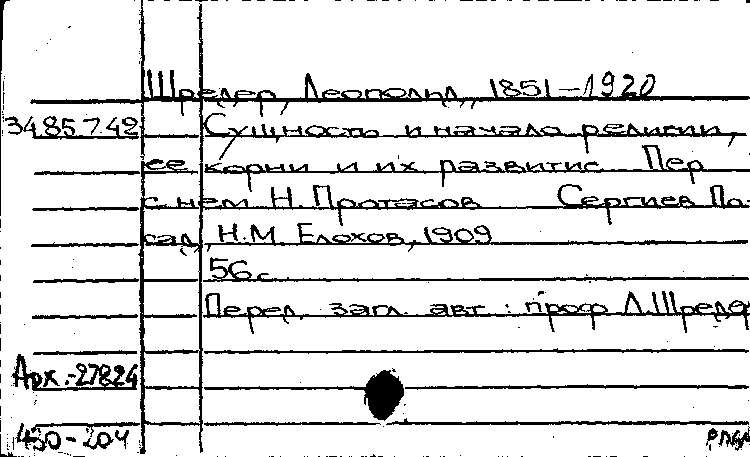 Шредер, Леопольд, 1851-1920
34.85.7.42 Сущность и начало религии,
ее корни и их развитие Пер
с нем Н. Протасов Сергиев По-
сад, Н.М. Елохов, 1909
56 с.
Перед загл. авт : проф Л.Шредер
Арх.-27824
450-204